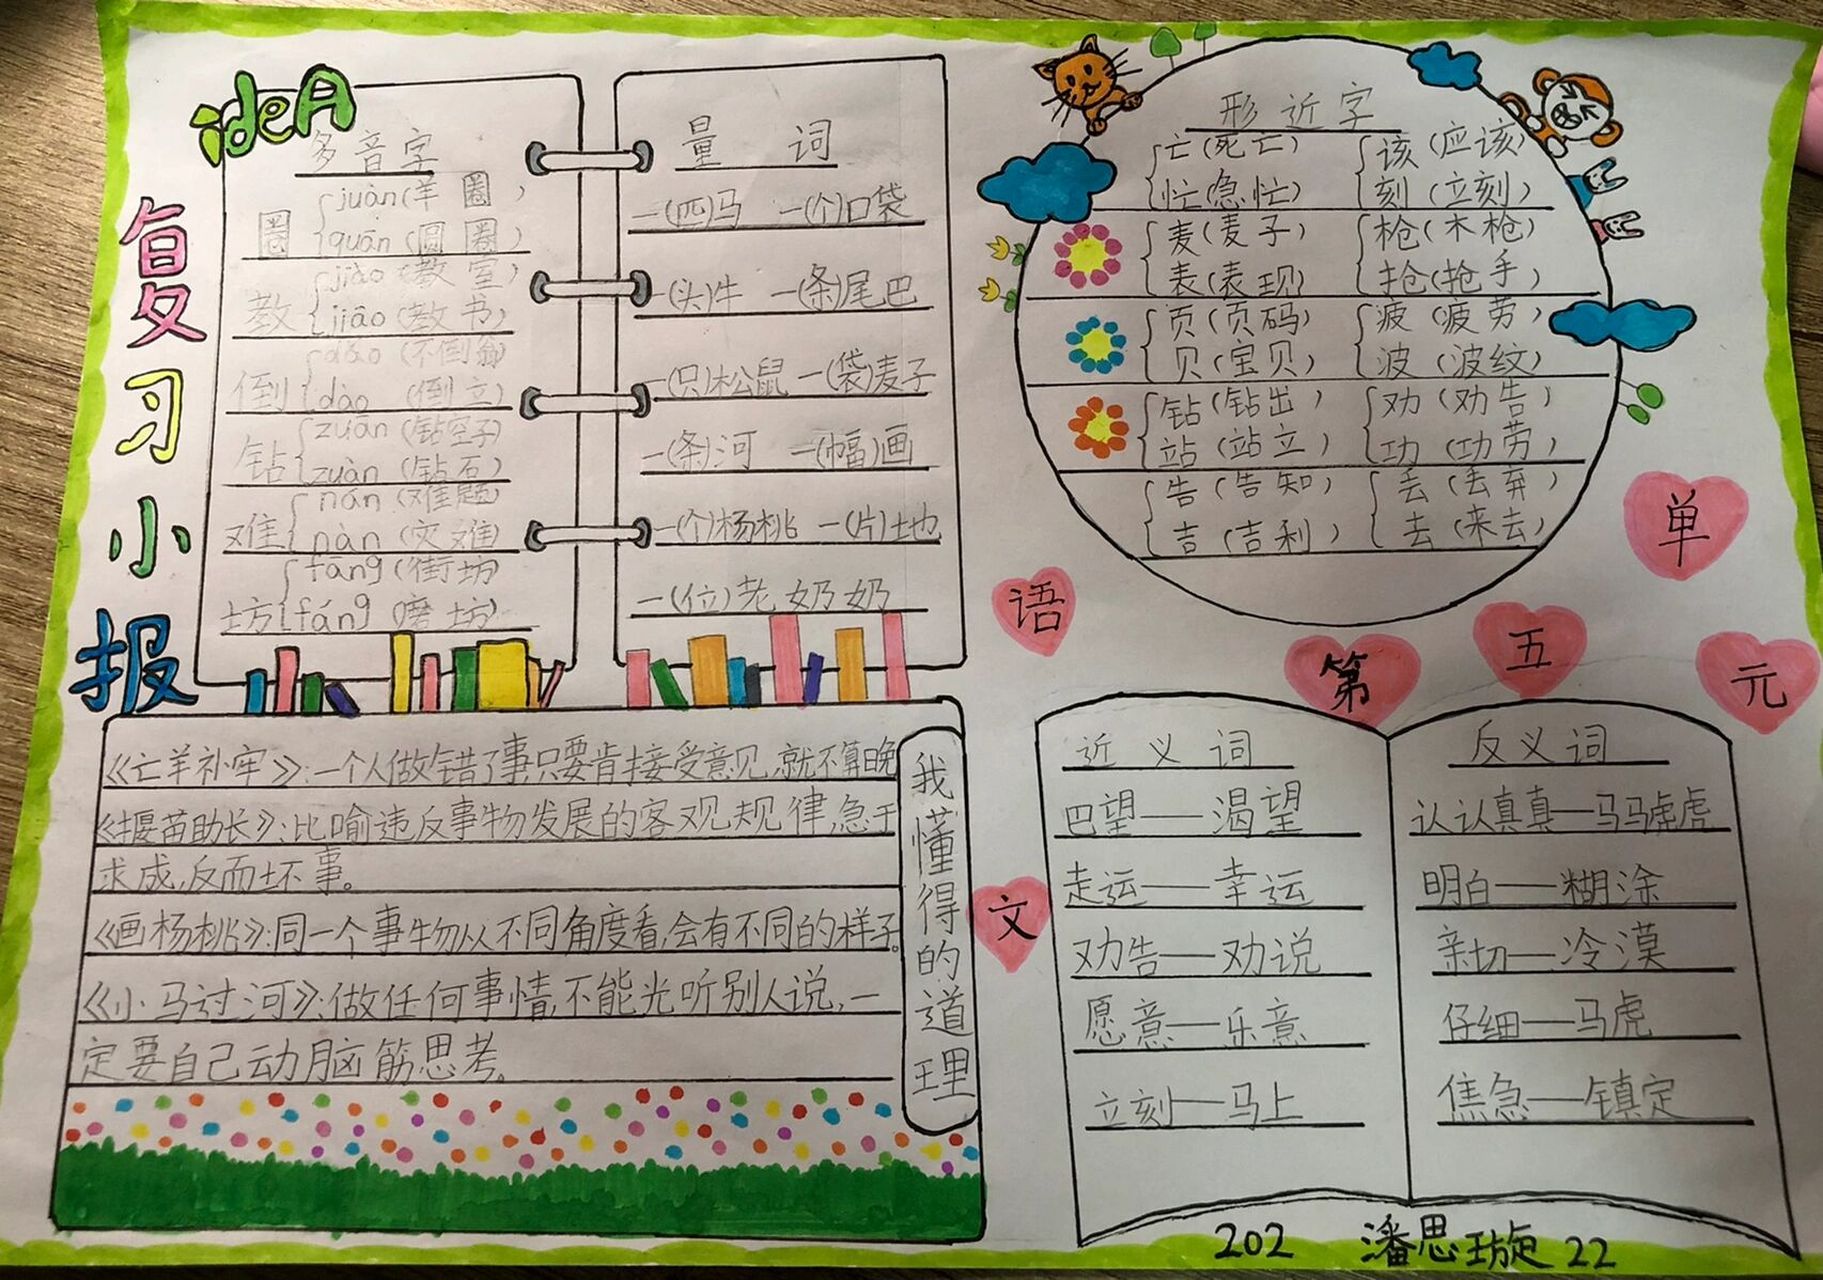 ideA
复习小报
多音字
圈
juàn(羊圈)
quān(圆圈)
教
jiào(教室)
jiāo(教书)
倒
dǎo(不倒翁)
dào(倒立)
钻
zuān(钻空子)
zuàn(钻石)
难
nán(难题)
nàn(灾难)
坊
fāng(街坊)
fáng(磨坊)
量词
一(匹)马 一(个)口袋
一(头)牛 一(条)尾巴
一(只)松鼠 一(袋)麦子
一(条)河 一(幅)画
一(个)杨桃 一(片)地
一(位)老奶奶
形近字
亡(死亡) 该(应该)
忙(急忙) 刻(立刻)
麦(麦子) 枪(木枪)
表(表现) 抢(抢手)
页(页码) 疲(疲劳)
贝(宝贝) 波(波纹)
钻(钻出) 劝(劝告)
站(站立) 功(功劳)
告(告知) 丢(丢弃)
吉(吉利) 去(来去)
语文
第五单元
《亡羊补牢》:一个人做错了事,只要肯接受意见,就不算晚
《揠苗助长》:比喻违反事物发展的客观规律,急于
求成,反而坏事。
《画杨桃》:同一个事物从不同角度看,会有不同的样子。
《小马过河》:做任何事情,不能光听别人说,一
定要自己动脑筋思考。
我懂得的道理
近义词
巴望——渴望
走运——幸运
劝告——劝说
愿意——乐意
立刻——马上
反义词
认认真真——马马虎虎
明白——糊涂
亲切——冷漠
仔细——马虎
焦急——镇定
202 潘思璇 22